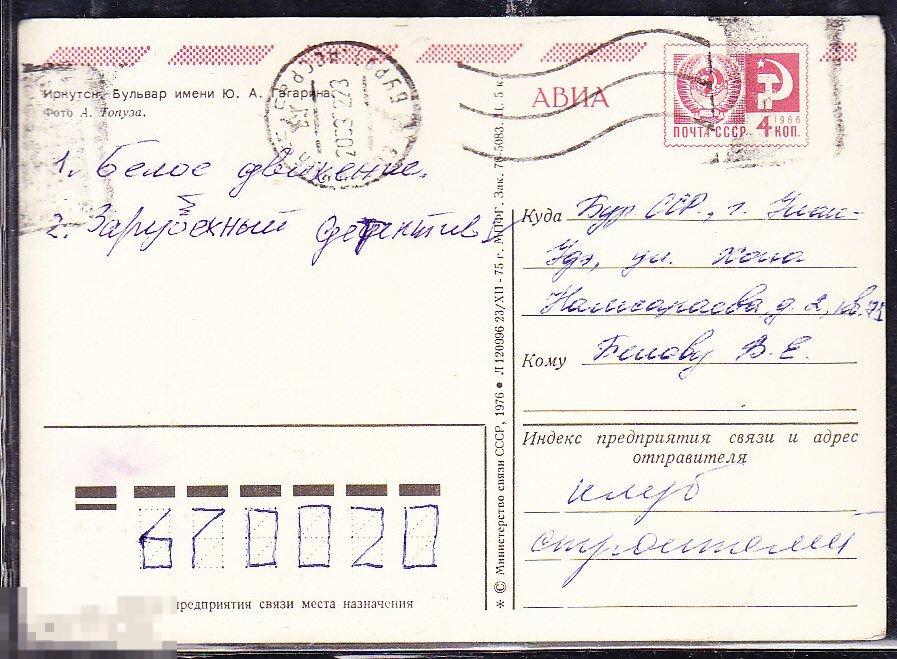 Иркутск. Бульвар имени Ю. А. Гагарина.
Фото А. Топуза.
АВИА
ПОЧТА СССР 4 КОП.
1966
1. Белое движение.
2. Зарубежный детектив
Куда Бур ССР., г. Улан-
Удэ, ул. Хоца
Намсараева, д. 2, кв. 75
Кому Белову В. Е.
Индекс предприятия связи и адрес
отправителя
клуб
строителей
670020
предприятия связи места назначения
* © Министерство связи СССР, 1976 • Л 120996 23/XII - 75 г. МПФГ. Зак. 76-5083. Ц. 5 к.